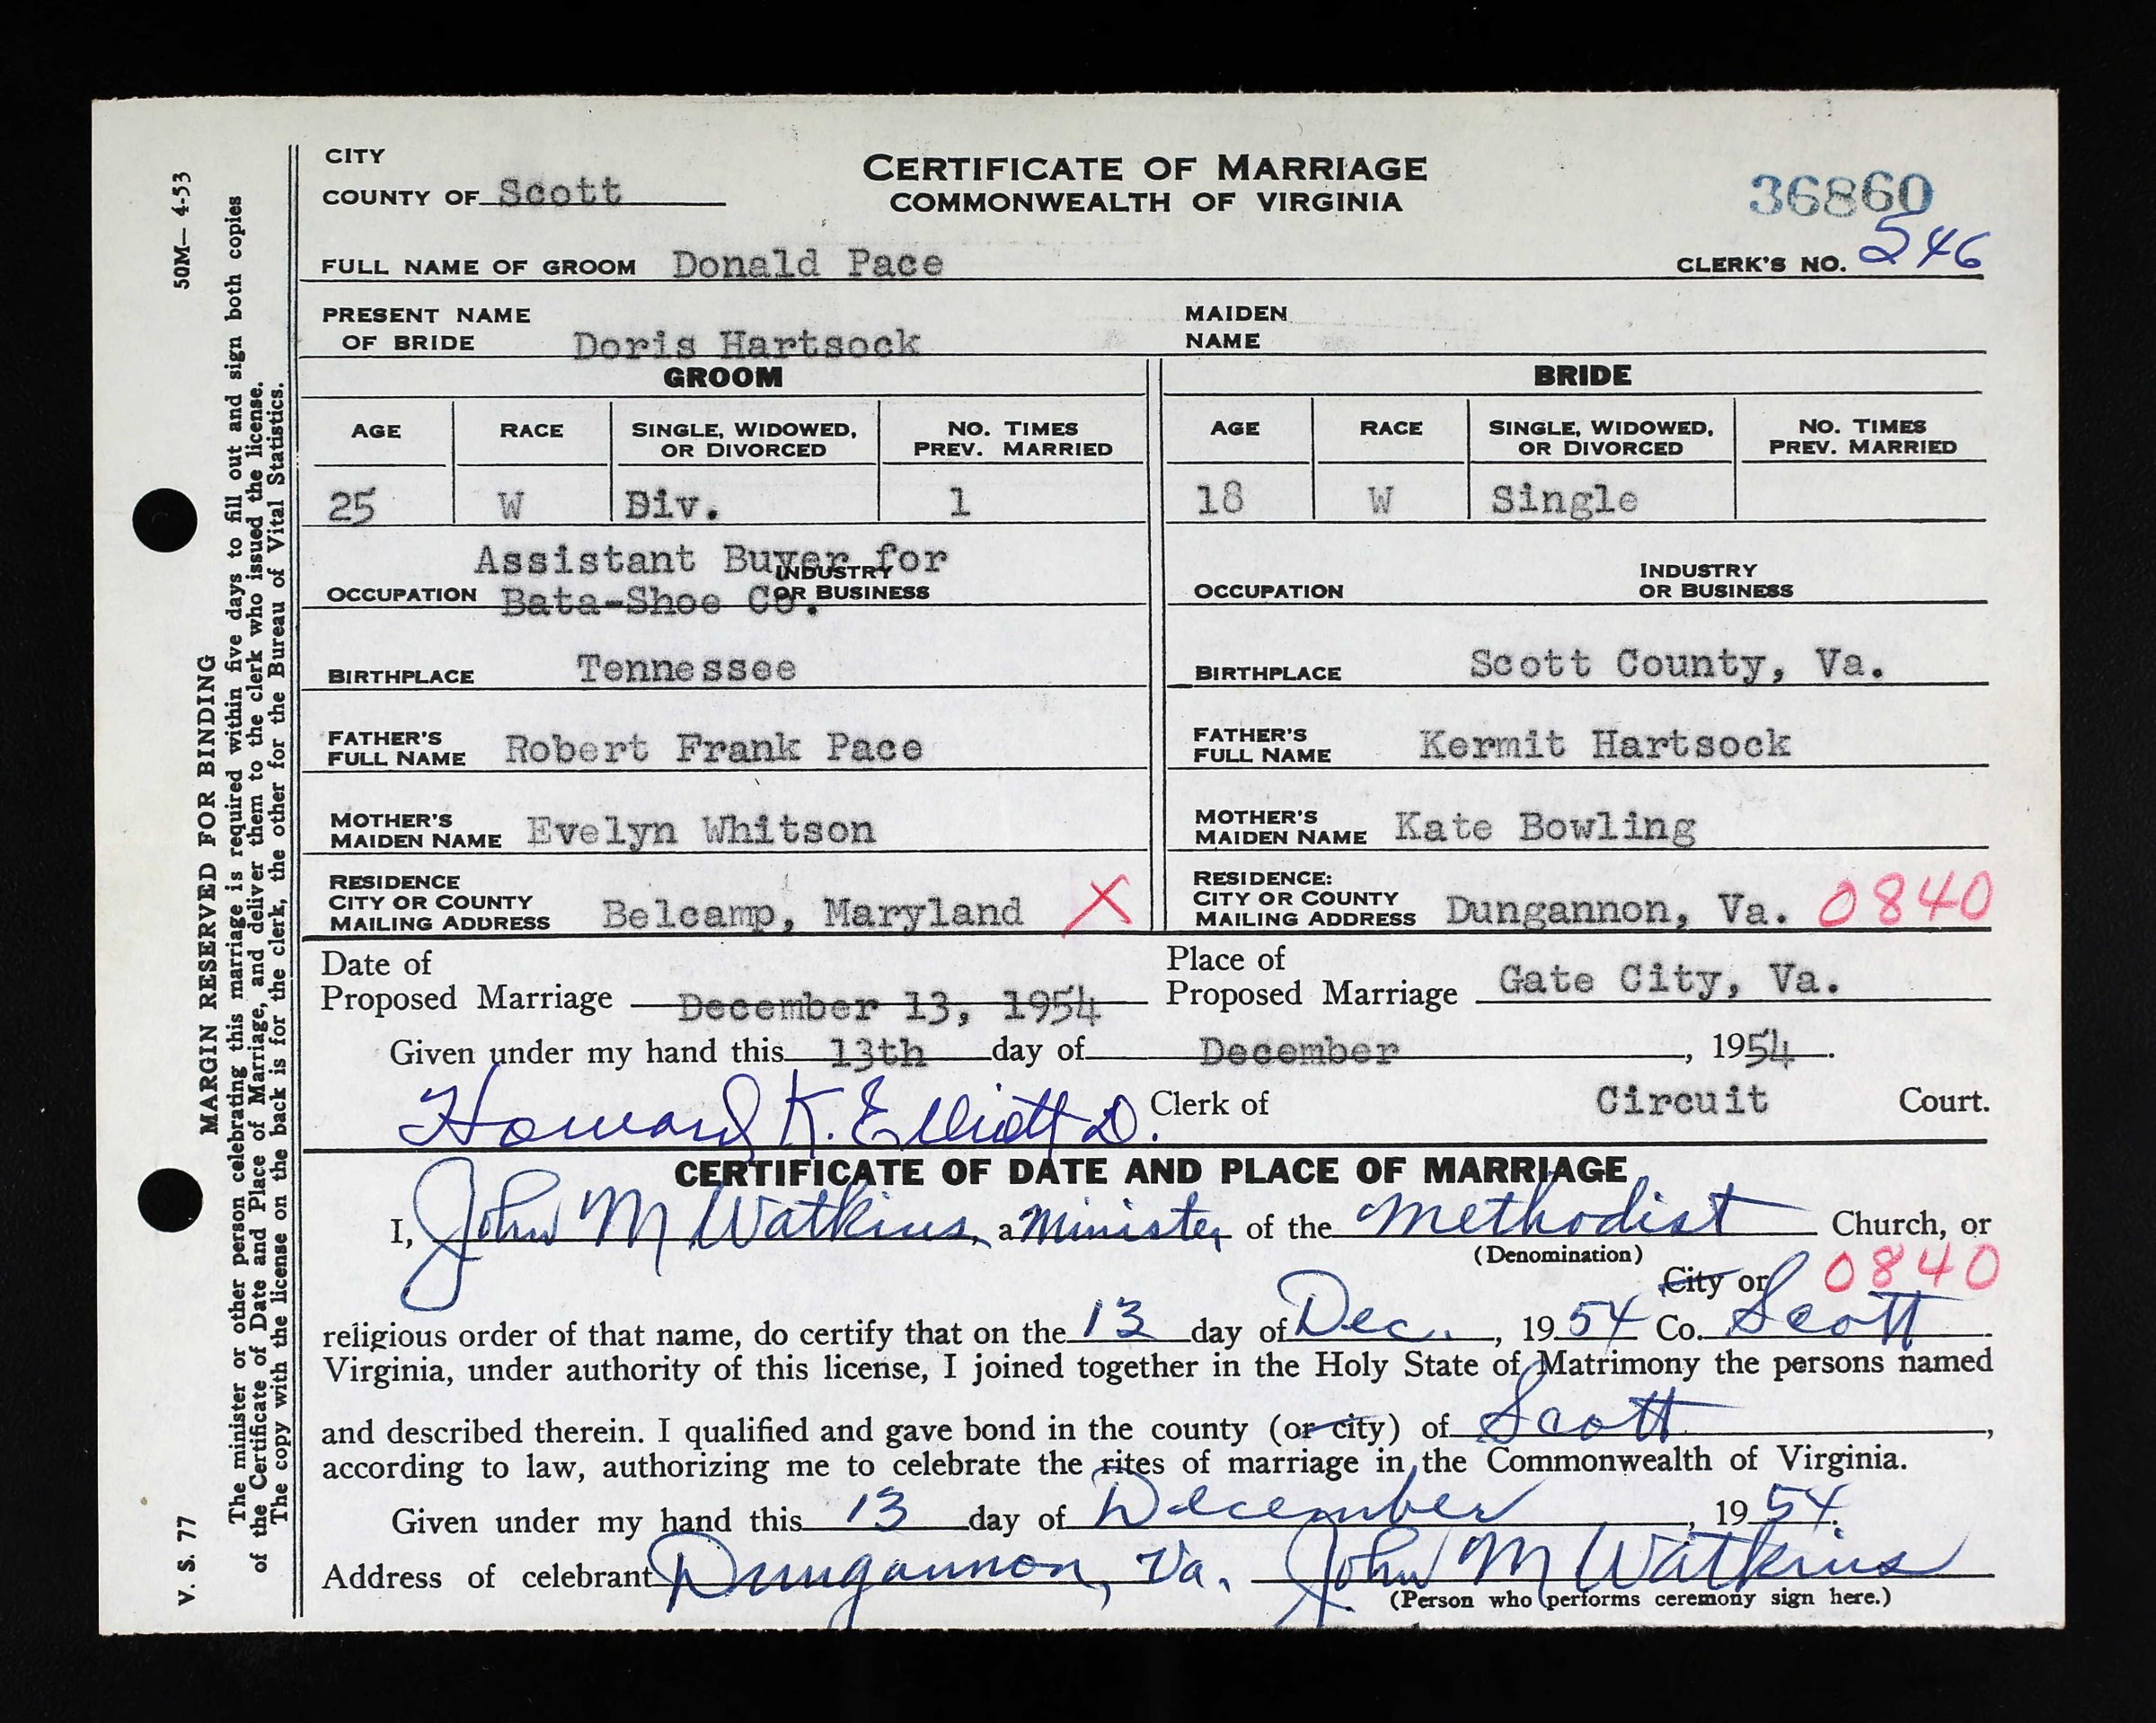 CITY
COUNTY OF Scott
CERTIFICATE OF MARRIAGE
COMMONWEALTH OF VIRGINIA
36860
FULL NAME OF GROOM Donald Pace
CLERK'S NO. 546
PRESENT NAME
OF BRIDE Doris Hartsock
MAIDEN
NAME
GROOM
BRIDE
AGE RACE SINGLE, WIDOWED, OR DIVORCED NO. TIMES PREV. MARRIED
AGE RACE SINGLE, WIDOWED, OR DIVORCED NO. TIMES PREV. MARRIED
25 W Div. 1
18 W Single
Assistant Buyer for
OCCUPATION Bata-Shoe Co. INDUSTRY OR BUSINESS
OCCUPATION INDUSTRY OR BUSINESS
BIRTHPLACE Tennessee
BIRTHPLACE Scott County, Va.
FATHER'S
FULL NAME Robert Frank Pace
FATHER'S
FULL NAME Kermit Hartsock
MOTHER'S
MAIDEN NAME Evelyn Whitson
MOTHER'S
MAIDEN NAME Kate Bowling
RESIDENCE
CITY OR COUNTY
MAILING ADDRESS Belcamp, Maryland X
RESIDENCE:
CITY OR COUNTY
MAILING ADDRESS Dungannon, Va. 0840
Date of
Proposed Marriage December 13, 1954
Place of
Proposed Marriage Gate City, Va.
Given under my hand this 13th day of December, 1954.
Howard K. Elliott D. Clerk of Circuit Court.
CERTIFICATE OF DATE AND PLACE OF MARRIAGE
I, John M Watkins, a Minister of the Methodist Church, or
(Denomination)
City or 0840
religious order of that name, do certify that on the 13 day of Dec., 1954 Co. Scott
Virginia, under authority of this license, I joined together in the Holy State of Matrimony the persons named
and described therein. I qualified and gave bond in the county (or city) of Scott,
according to law, authorizing me to celebrate the rites of marriage in the Commonwealth of Virginia.
Given under my hand this 13 day of December, 1954.
Address of celebrant Dungannon, Va. John M Watkins
(Person who performs ceremony sign here.)
V. S. 77
MARGIN RESERVED FOR BINDING
50M—4-53
The minister or other person celebrating this marriage is required within five days to fill out and sign both copies
of the Certificate of Date and Place of Marriage, and deliver them to the clerk who issued the license.
The copy with the license on the back is for the clerk, the other for the Bureau of Vital Statistics.